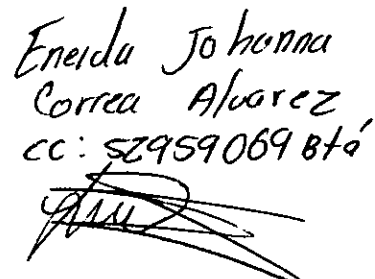 Eneida Johanna
Correa Alvarez
cc: 52959069 Btá